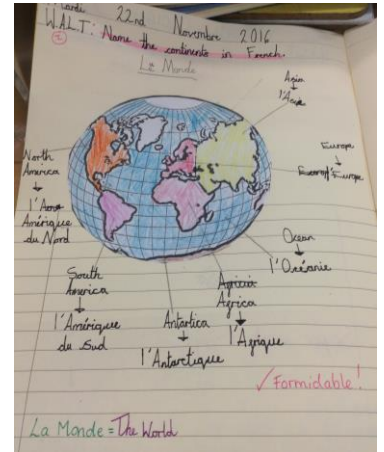 Mardi 22nd Novembre 2016
W.A.L.T: Name the continents in French.
La Monde
Asia
l'Asie
Europe
l'Europe
North
America
l'
Amérique
du Nord
Ocean
l'Océanie
South
America
l'Amérique
du Sud
Antartica
l'Antarctique
Africa
l'Afrique
✓ Formidable!
La Monde = The World